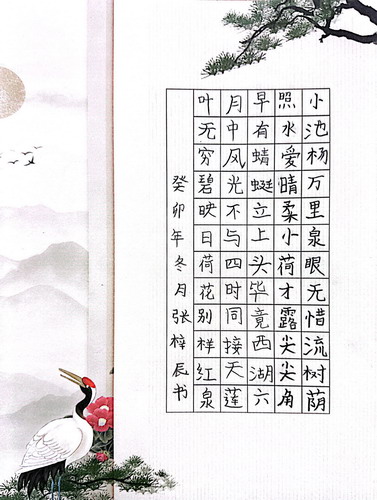 小池杨万里泉眼无惜流树荫
照水爱晴柔小荷才露尖尖角
早有蜻蜓立上头毕竟西湖六
月中风光不与四时同接天莲
叶无穷碧映日荷花别样红泉
癸卯年冬月张梓辰书